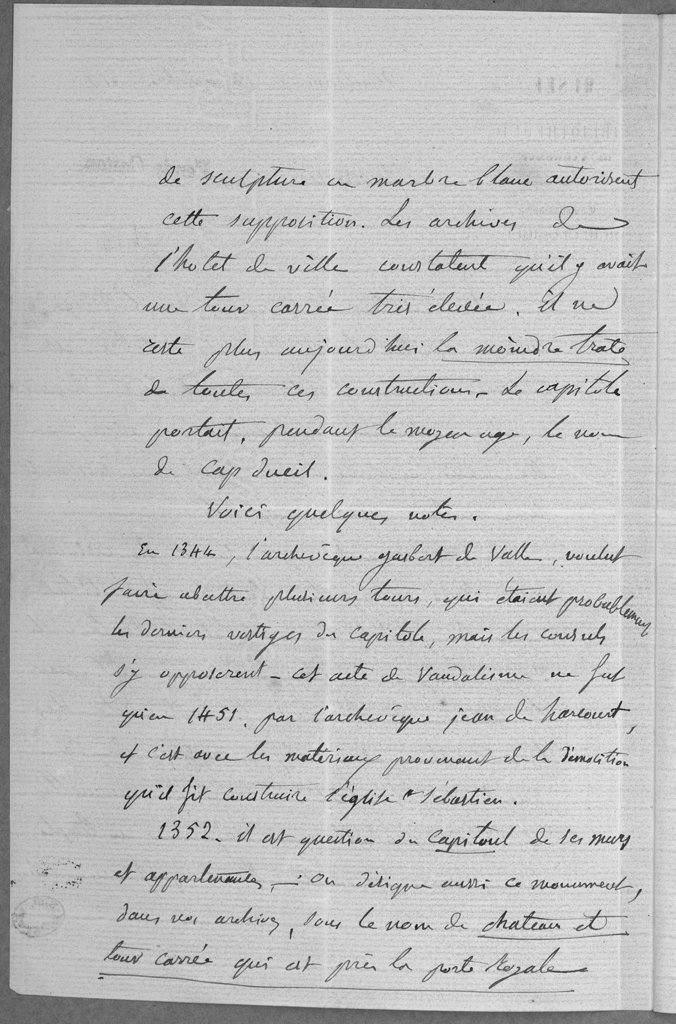 de sculpture en marbre blanc autorisent
cette supposition. Les archives de
l'hotel de ville constatent qu'il y avait
une tour carrée très élevée. il ne
reste plus aujourd'hui la moindre trace
de toutes ces constructions. Le capitole
portait, pendant le moyen age, le nom
de Capdueil.
Voici quelques notes.
En 1344, l'archevêque gasbert de Valle, voulut
faire abattre plusieurs tours, qui étaient probablement
les derniers vestiges du capitole, mais les consuls
s'y opposerent - cet acte de Vandalisme ne fut
qu'en 1451, par l'archevêque jean de harcourt,
et c'est avec les matériaux provenant de la démolition
qu'il fit construire l'église St Sébastien.
1352. il est question du Capitoul de ses murs
et appartenantes -: on désigne aussi ce monument,
dans nos archives, sous le nom de chateau et
tour carrée qui est près la porte Royale